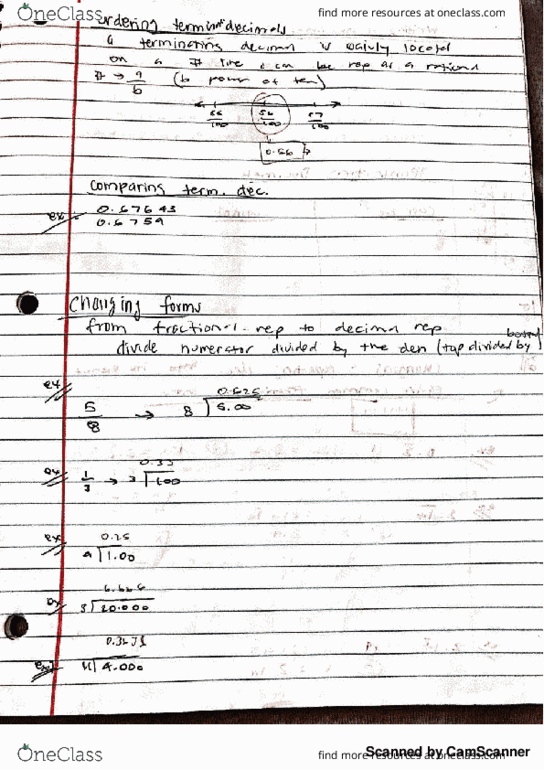 OneClass find more resources at oneclass.com
ordering terminat decimals
a terminating decimal is easily located
on a # line & can be rep as a rational
# → a/b (b power of ten)
55/100 56/100 57/100
0.56
Comparing term. dec.
ex 0.67643
0.6759
Changing forms
from fractional rep to decimal rep
divide numerator divided by the den (top divided by bottom)
ex
5/8 → 8 0.625 5.00
ex 1/3 → 3 0.33 1.00
ex 0.25
4 1.00
ex 6.666
3 20.000
ex
11 4.000
OneClass find more resources at oneclass.com
Scanned by CamScanner